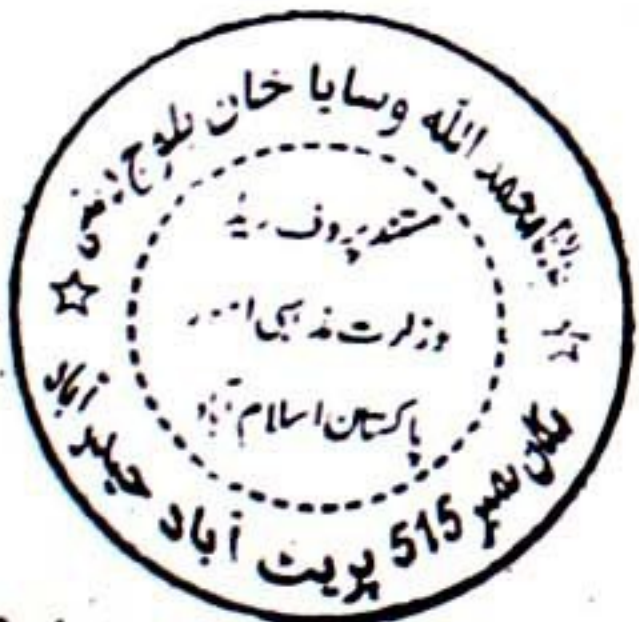 محمد اللہ وسایا خان بلوچ
مستند پروف ریڈر
وزارت مذہبی امور
پاکستان اسلام آباد
مکان نمبر 515 پریٹ آباد حیدر آباد